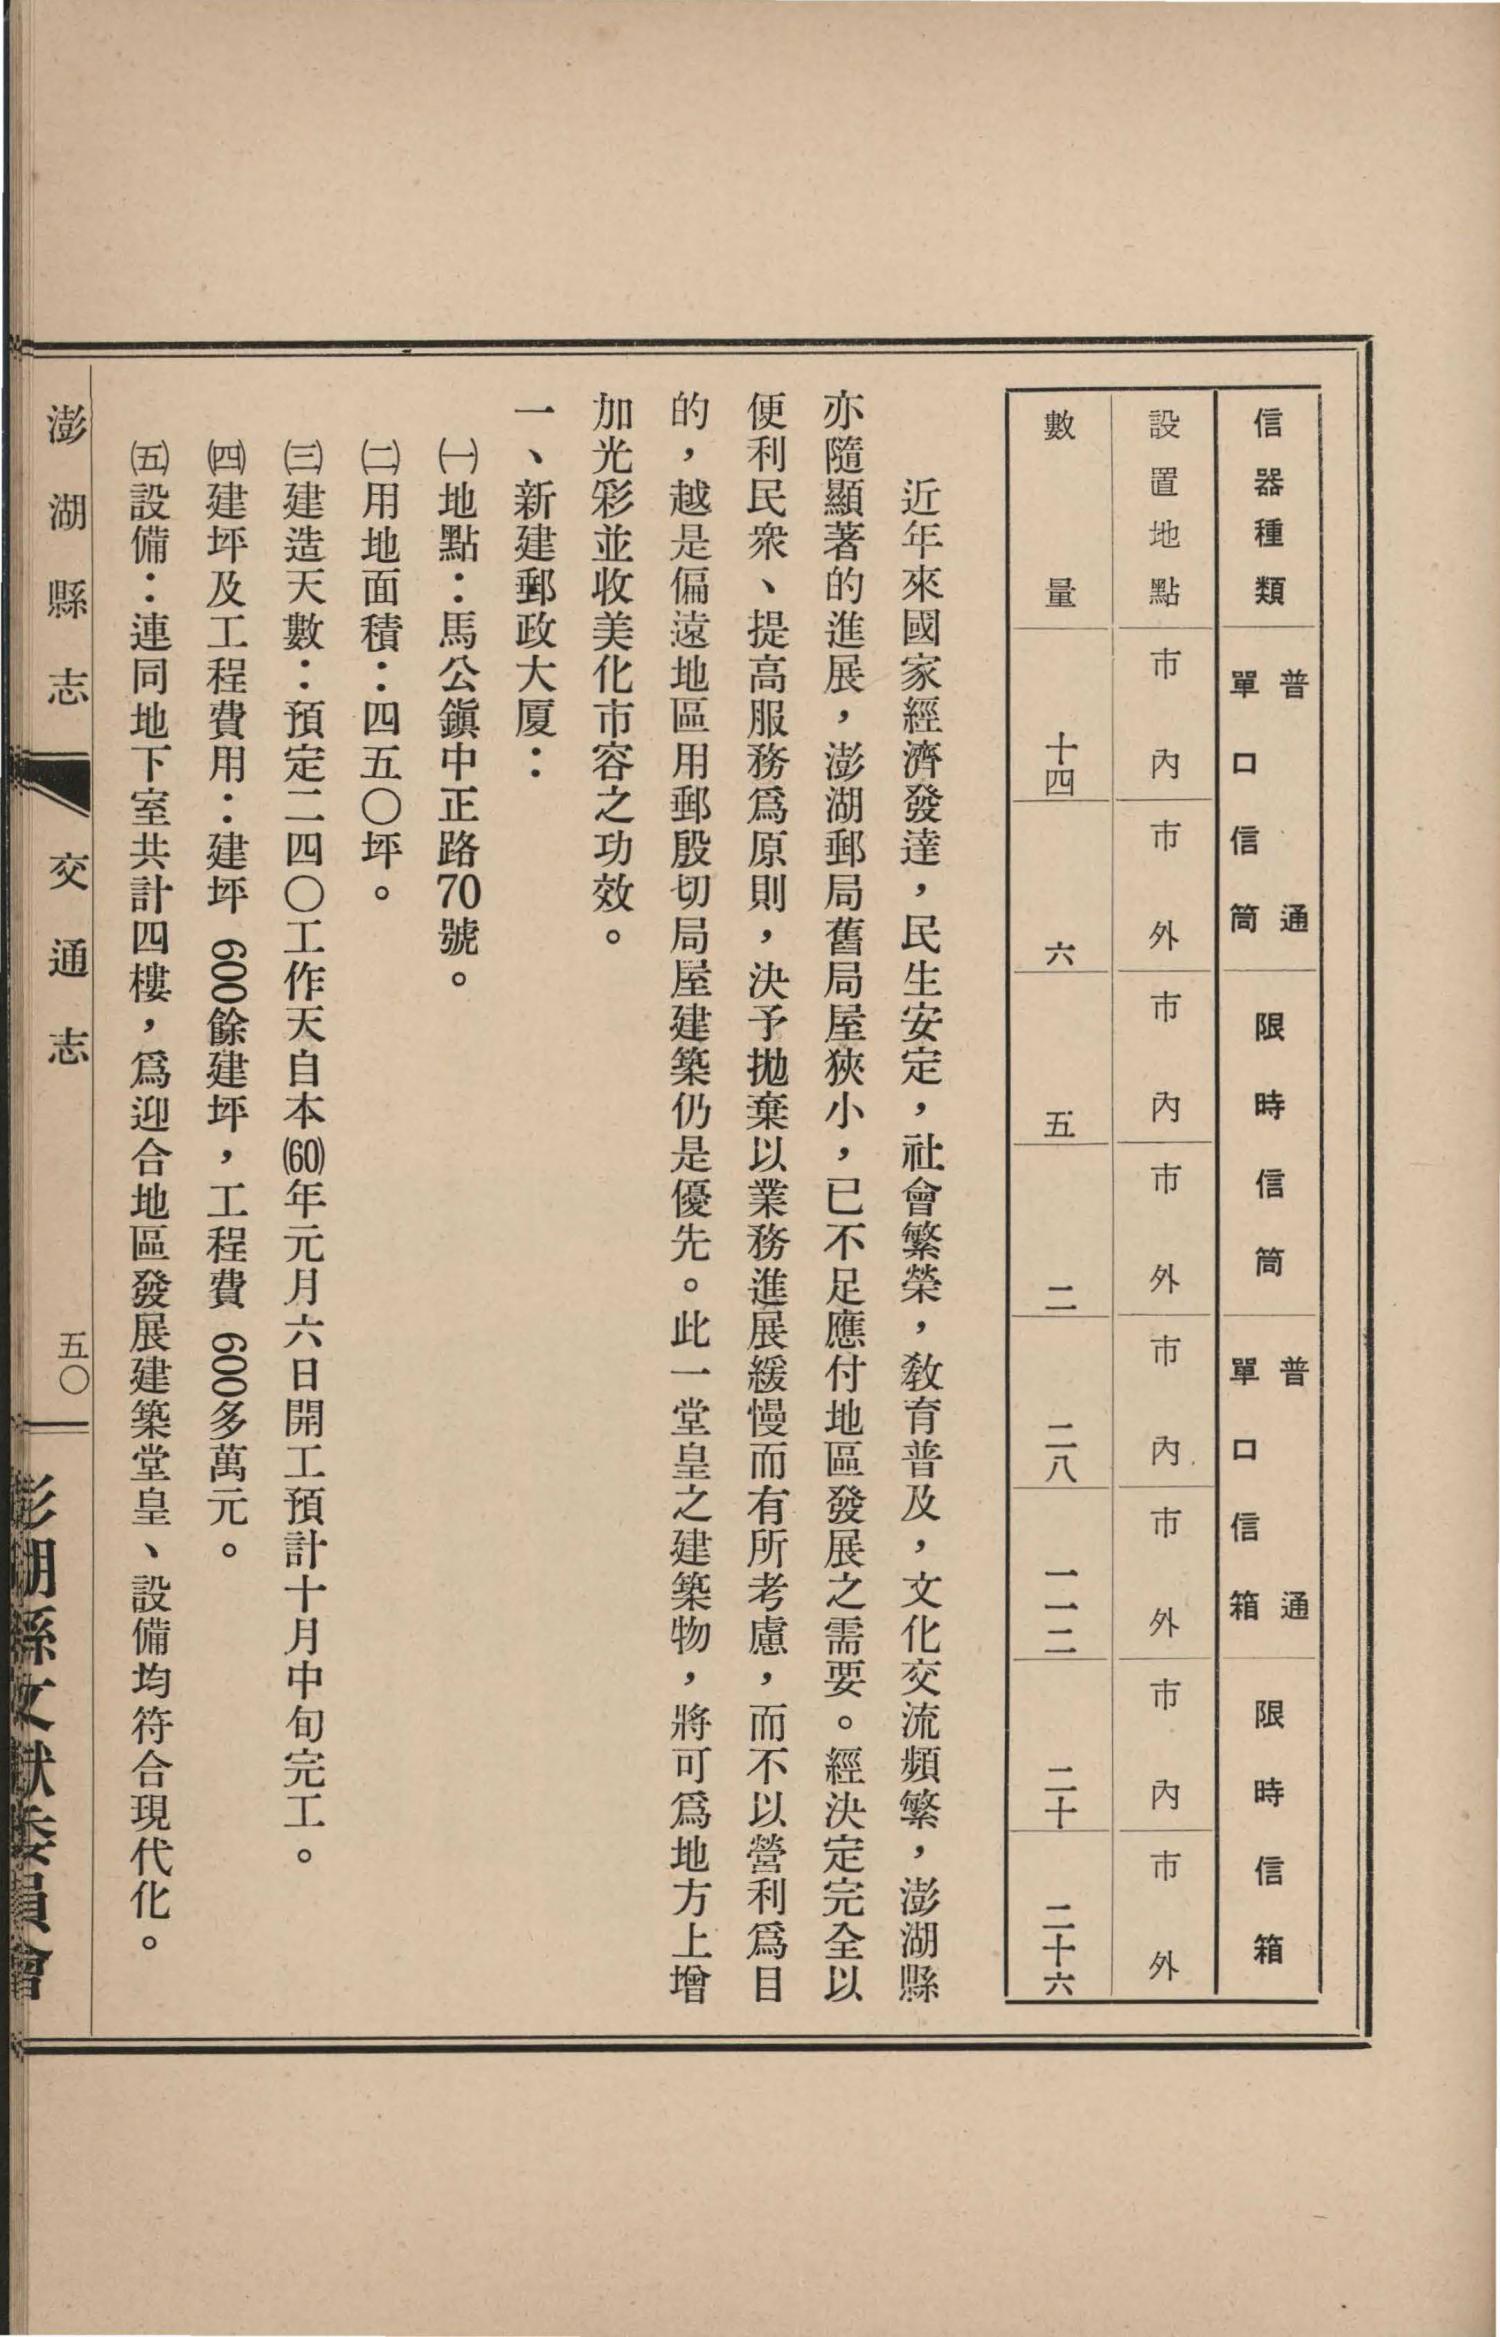 信器種類　普通單口信筒　限時信筒　普通單口信箱　限時信箱
設置地點　市內　市外　市內　市外　市內　市外　市內　市外
數量　十四　六　五　二　二八　一一二　二十　二十六
近年來國家經濟發達，民生安定，社會繁榮，教育普及，文化交流頻繁，澎湖縣
亦隨顯著的進展，澎湖郵局舊局屋狹小，已不足應付地區發展之需要。經決定完全以
便利民衆、提高服務爲原則，決予拋棄以業務進展緩慢而有所考慮，而不以營利爲目
的，越是偏遠地區用郵殷切局屋建築仍是優先。此一堂皇之建築物，將可爲地方上增
加光彩並收美化市容之功效。
一、新建郵政大厦：
㈠地點：馬公鎭中正路70號。
㈡用地面積：四五〇坪。
㈢建造天數：預定二四〇工作天自本(60)年元月六日開工預計十月中旬完工。
㈣建坪及工程費用：建坪600餘建坪，工程費600多萬元。
㈤設備：連同地下室共計四樓，爲迎合地區發展建築堂皇、設備均符合現代化。
澎湖縣志　交通志　五〇
澎湖縣文獻委員會